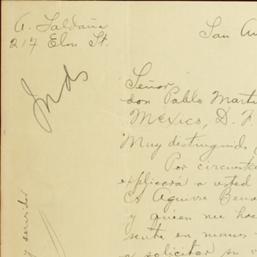 A. Saldaña
217 Elm St.
San A
Inds
Señor
don Pablo Mart
Mexico, D. F
Muy distinguido
Por circunst
explicará a usted
C. Aguirre Bena
y quien me hac
sente en manos
a solicitar su v
y servidor